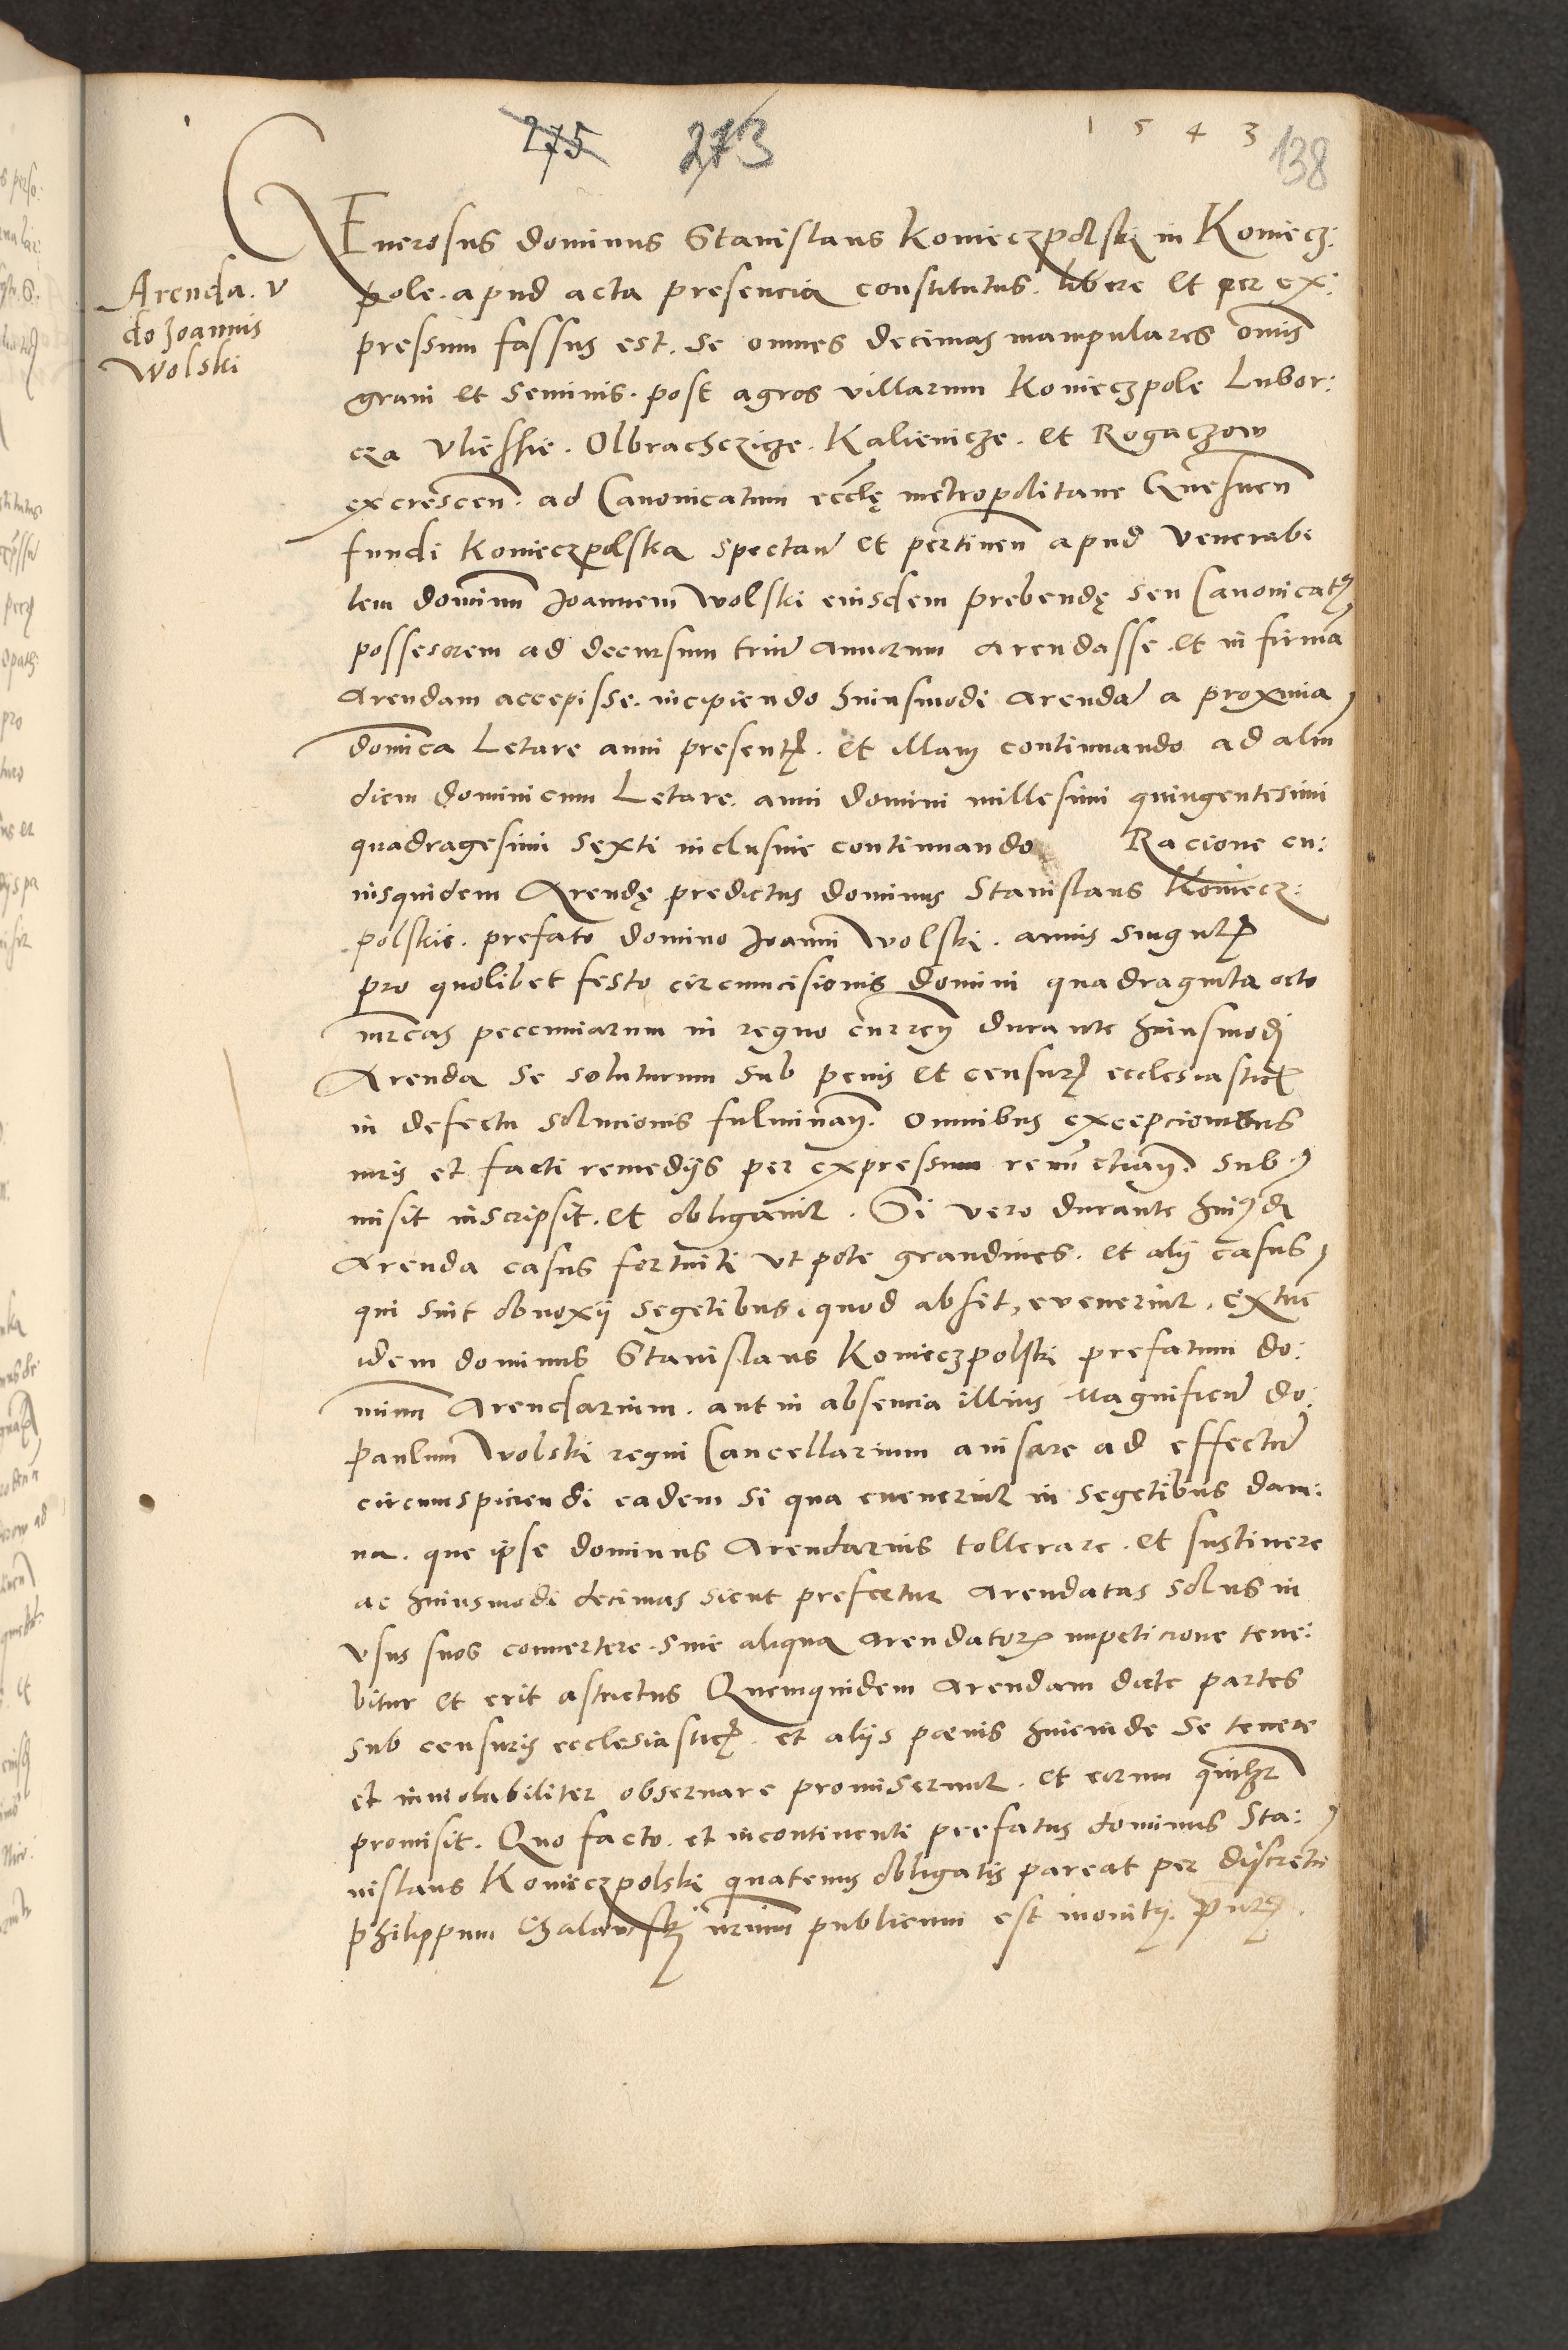 275 273 1543 138
GEnerosus dominus Stanislaus Konieczpolski in Koniecz:
Arenda. v
do Joannis
Wolski
pole. apud acta presencia constitutus. libere et per ex:
pressum fassus est. se omnes decimas manipulares omis
grani et seminis. post agros villarum Konieczpole Lubor:
cza Vliesshie. Olbrachczicze. Kalienicze. et Rogaczow
excrescen. ad Canonicatum eccle metropolitane Gnesnen
fundi Konieczpolska spectan et pertinen apud venerabi
lem dominu Joannem Wolski eiusdem prebende seu Canonicat9
possesorem ad decursum triu annorum arendasse. et in firma
arendam accepisse. incipiendo huiusmodi arenda a proxima
domica Letare anni presentz. et illam continuando ad aliu
diem dominicum Letare. anni domini millesimi quingentesimi
quadragesimi sexti inclusiue continuando Racione cu:
iusquidem Arende predictus dominus Stanislaus Koniecz:
polskie. prefato domino Joanni Wolski. annis singulz
pro quolibet festo circumcisionis domini quadraginta octo
mrcas pecuniarum in regno curren durante huiusmodj
Arenda se soluturum sub penis et censurz ecclesiasticz
in defectu solucionis fulminan. omnibus excepcionibus
iuris et facti remedijs per expressum renuctian. sub
misit inscripsit. et obligauit. Si vero durante hui9dj
Arenda casus fortuiti vt pote grandines. et alij casus
qui sint obnoxij segetibus, quod absit, euenerint. extuc
idem dominus Stanislaus Konieczpolski prefatum do:
minu Arendarium. aut in absencia illius Magnificu do:
Paulum Wolski regni Cancellarium auisare ad effectu
circumspiciendi eadem si qua euenerint in segetibus dam:
na. que ipse dominus Arendarius tollerare. et sustinere
ac huiusmodi decimas sicut prefertur arendatas solus in
vsus suos conuertere. sine aliqua arendatorz impeticione tene:
bitur et erit astrictus Quamquidem arendam dicte partes
sub censuris ecclesiasticz. et alijs poenis hincinde se tenere
et inuiolabiliter obseruare promiserunt. et eorum quilibet
promisit. Quo facto. et incontinenti prefatus dominus Sta:
nislaus Konieczpolski quatenus obligatis pareat per discretu
Philippum Chalawskj nrium publicum est monit9.